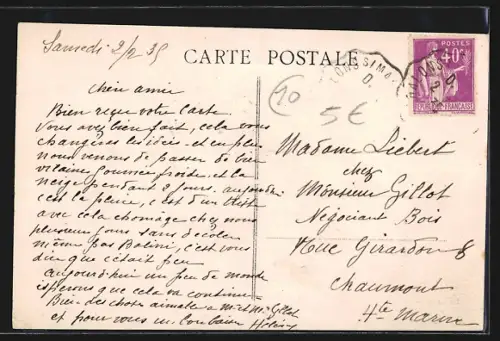 Samedi 2/2 35
CARTE POSTALE
POSTES
40c
RÉPUBLIQUE FRANÇAISE
10
5€
Chère amie
Bien reçu votre Carte.
Vous avez bien fait, cela vous
changera les idées. et en plus
nous venons de passer de bien
vilaine journée froide. et la
neige pendant 2 jours. aujourdui
c'est la pluie, c'est d'un triste
avec cela chomage chez nous
plusieurs jours sans d'école
même pas, c'est vous
dire que c'était peu
aujourd'hui un peu de monde
espérons que cela va continuer
Bien des choses aimable a Mr et Mme Gillot
et pour vous
Madame Liébert
chez
Monsieur Gillot
Négociant Bois
Rue Girardon 8
Chaumont
Hte Marne